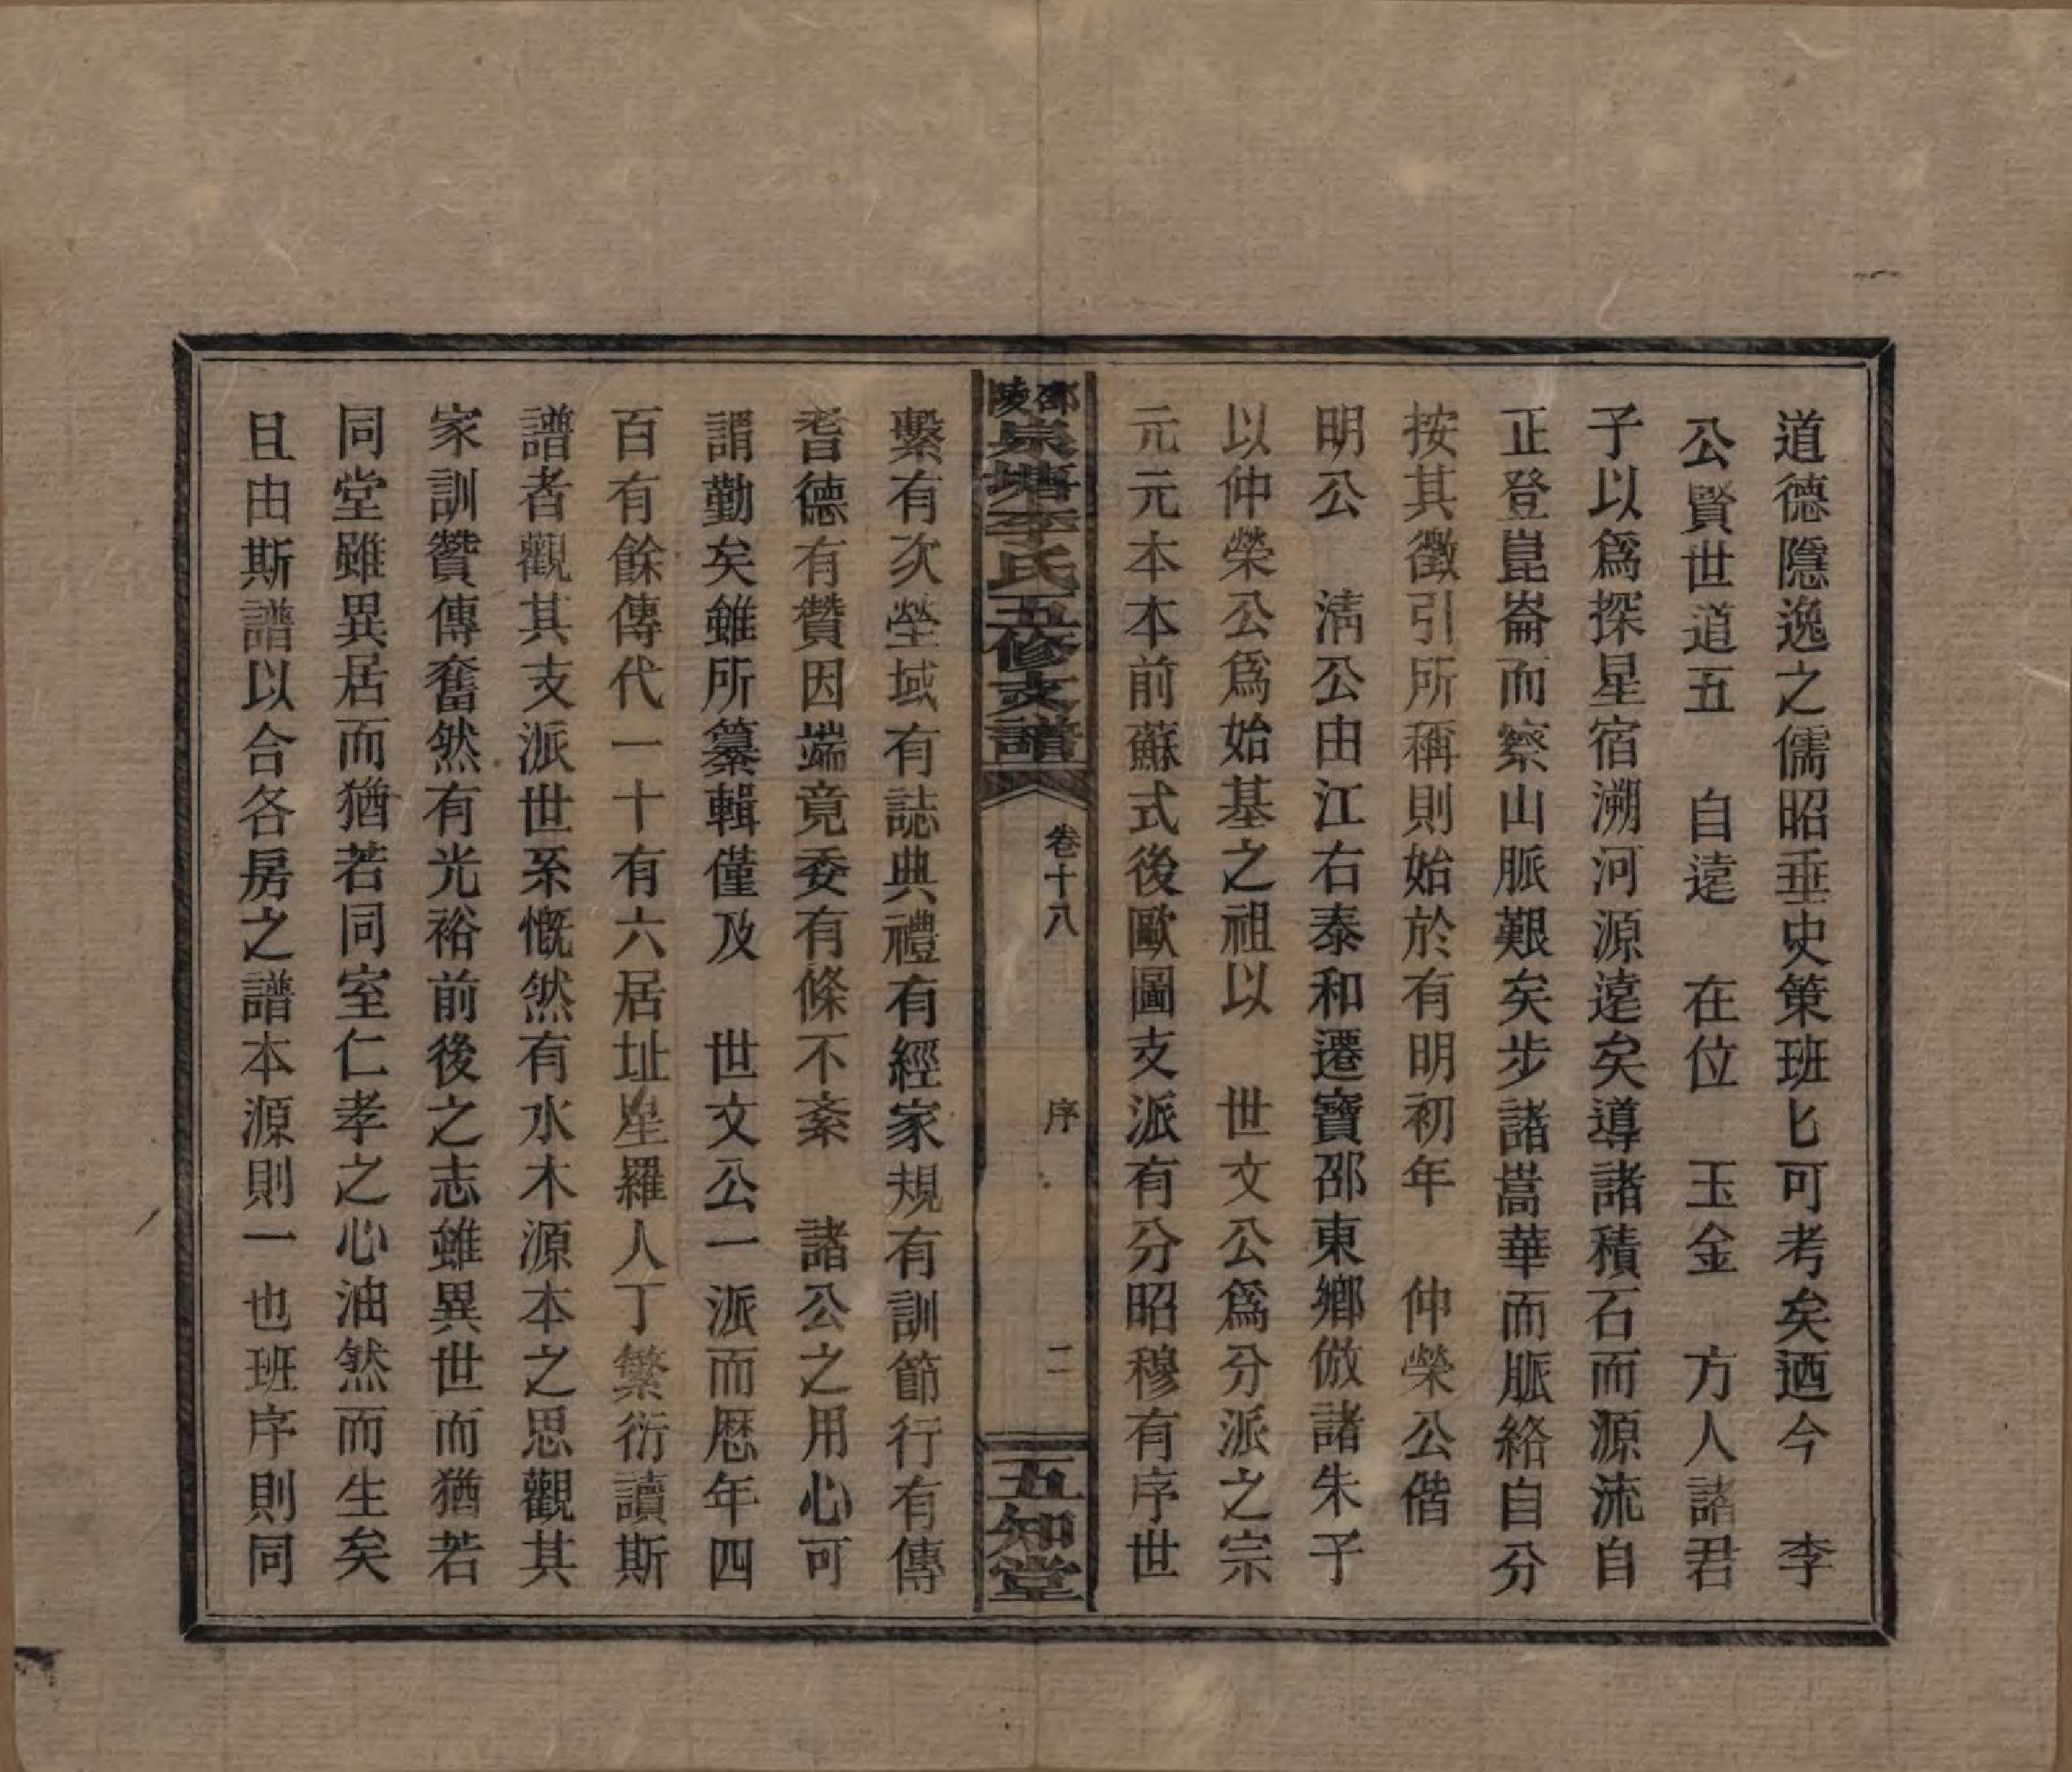 道德隱逸之儒昭垂史策班匕可考矣迺今　李
公賢世道五　自遠　在位　玉金　方人諸君
子以爲探星宿溯河源遠矣導諸積石而源流自
正登崑崙而察山脈艱矣步諸嵩華而脈絡自分
按其徵引所稱則始於有明初年　仲榮公偕
明公　清公由江右泰和遷寶邵東鄉倣諸朱子
以仲榮公爲始基之祖以　世文公爲分派之宗
元元本本前蘇式後歐圖支派有分昭穆有序世
邵陵泉塘李氏五修支譜　卷十八　序　二　五知堂
繫有次塋域有誌典禮有經家規有訓節行有傳
耆德有贊因端竟委有條不紊　諸公之用心可
謂勤矣雖所纂輯僅及　世文公一派而歷年四
百有餘傳代一十有六居址星羅人丁繁衍讀斯
譜者觀其支派世系慨然有水木源本之思觀其
家訓贊傳奮然有光裕前後之志雖異世而猶若
同堂雖異居而猶若同室仁孝之心油然而生矣
且由斯譜以合各房之譜本源則一也班序則同